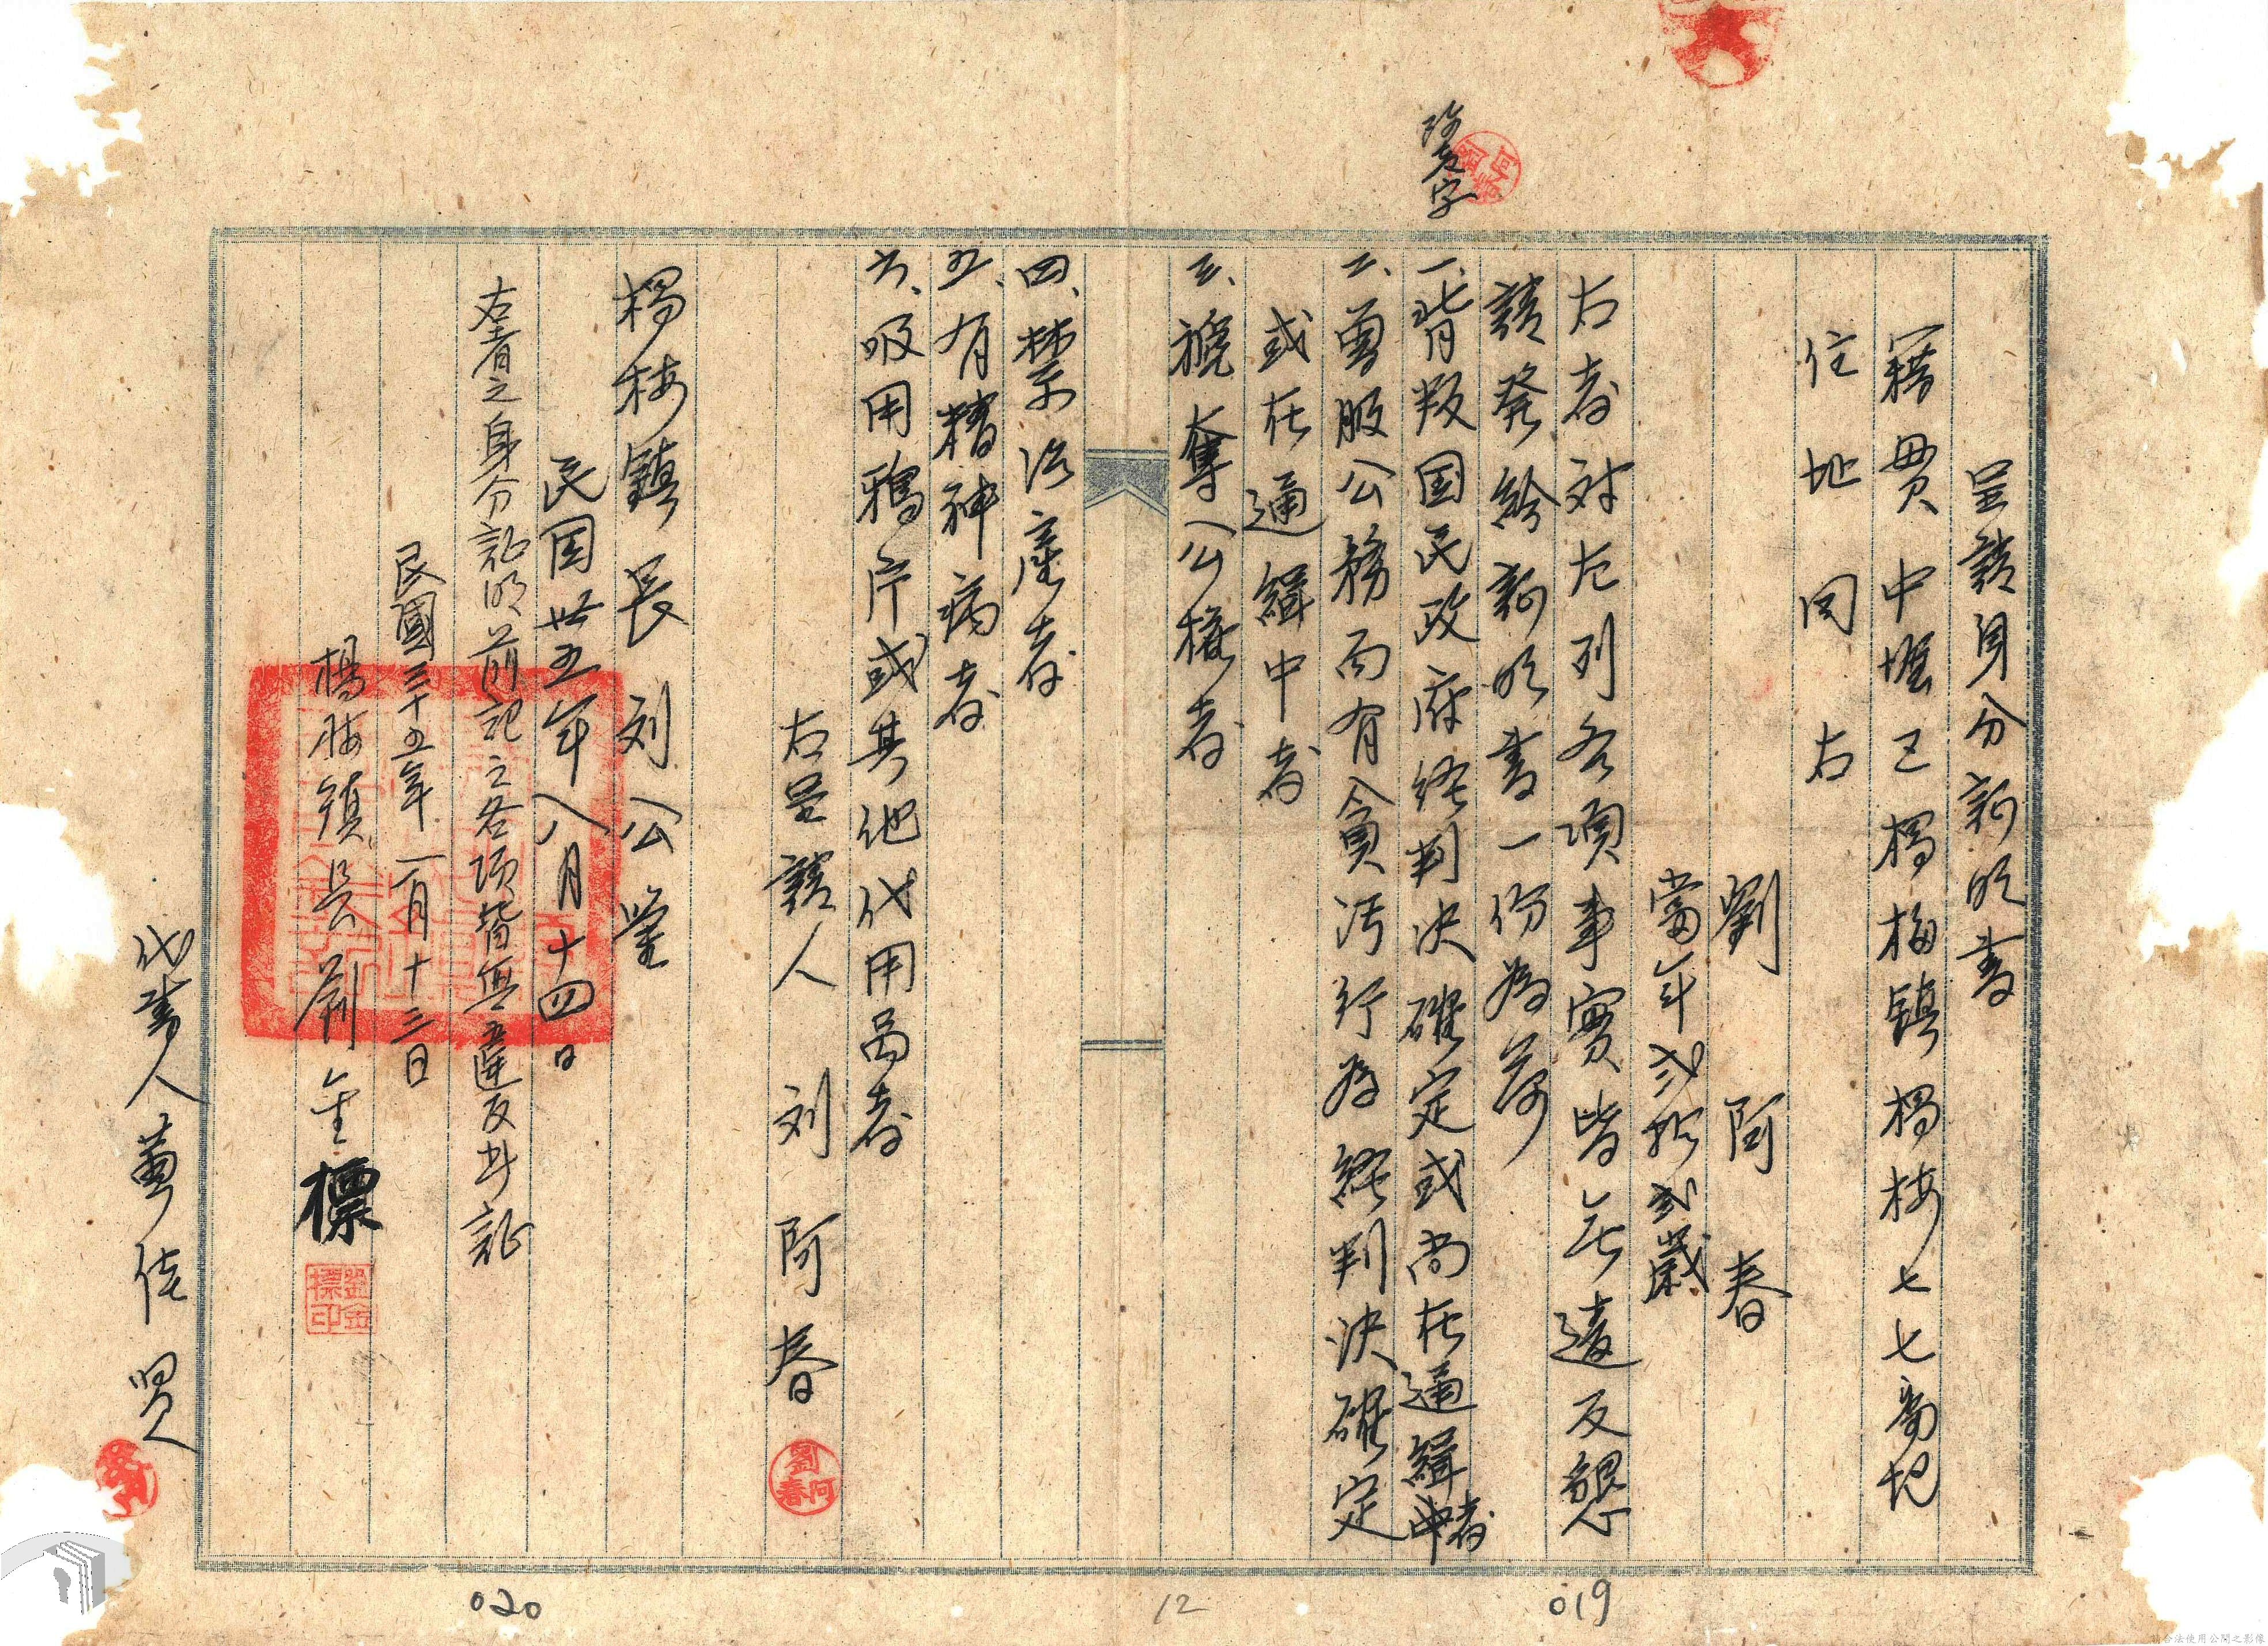 呈請身分証明書
籍貫 中壢區楊梅鎮楊梅七七七番地
住地 同右
劉阿春
當年弍拾弍歲
右者対左列各項事實皆无違反懇
請発給証明書一份為荷
一、背叛国民政府経判決確定或尚在通緝中者
二、曽服公務而有貪污行為経判決確定
或在通緝中者
三、褫奪公權者
四、禁治産者
五、有精神病者
六、吸用鴉片或其他代用品者
右呈請人 刘阿春
劉阿春
楊梅鎮長 刘公鑒
民国卅五年八月十四日
右者之身分証明前記之各項皆無違反此証
民國三十五年一月十三日
楊梅鎮長劉金標
劉金標印
代書人黃佳賢
字
020
12
019